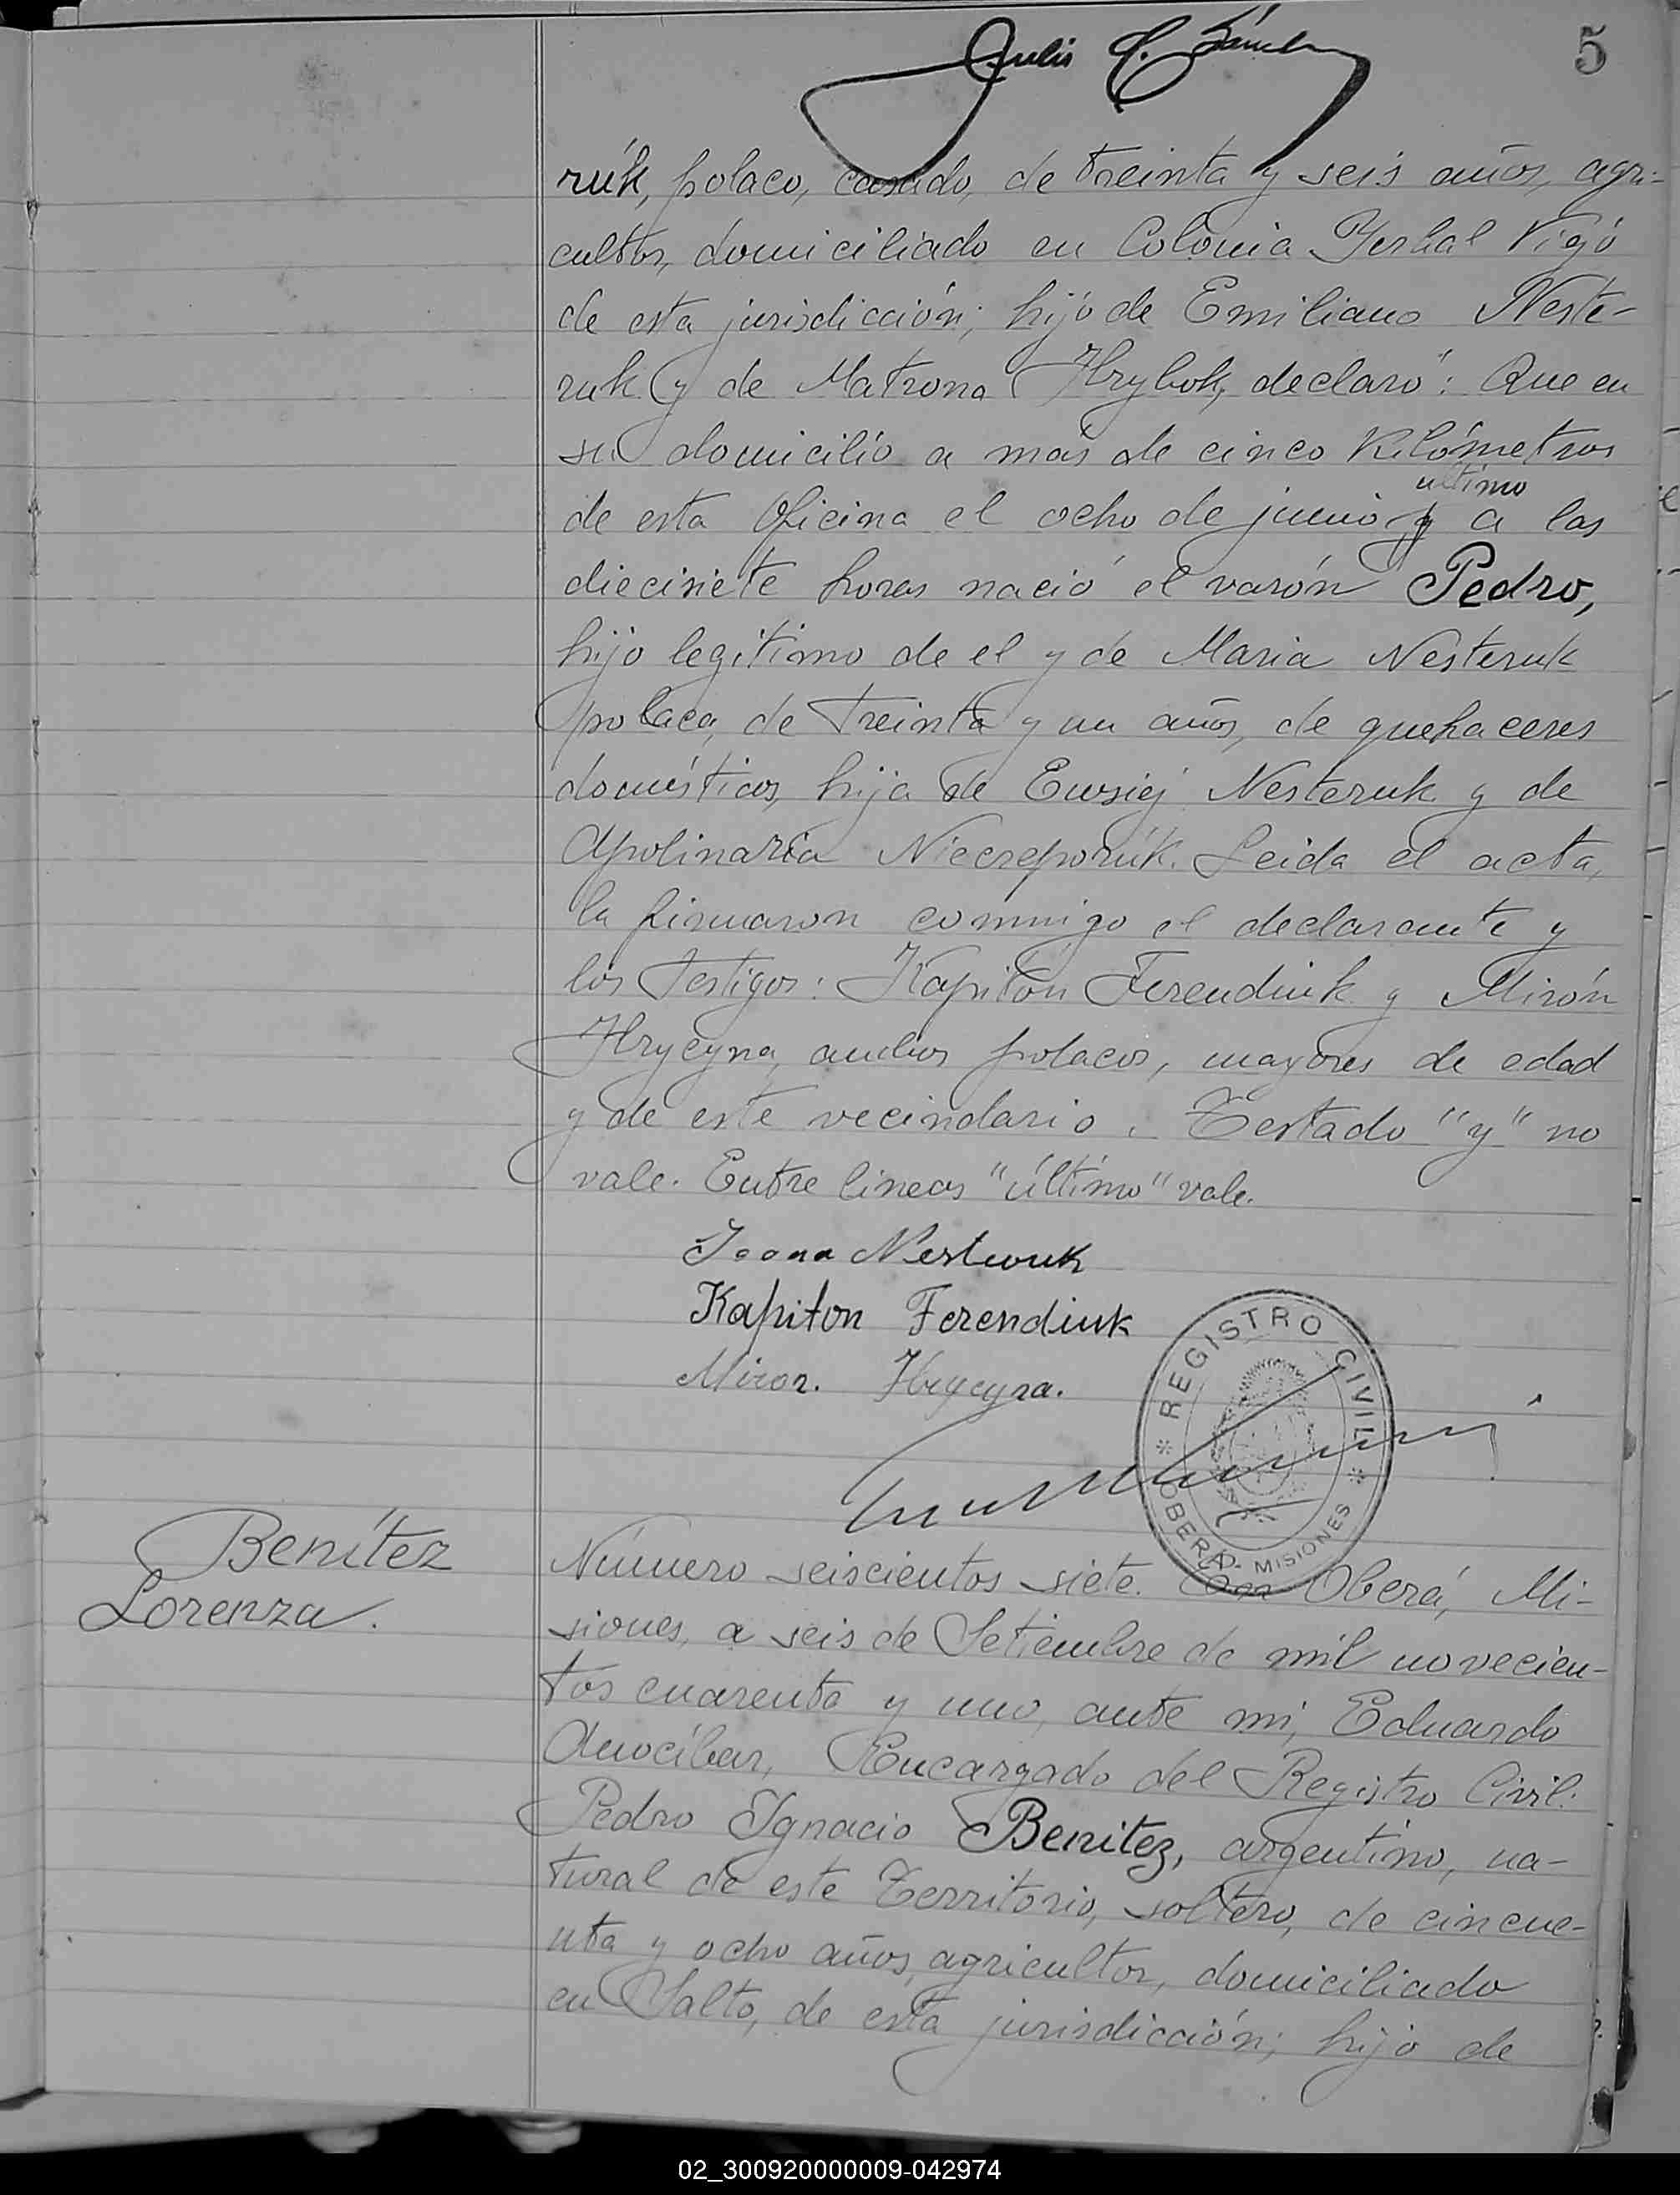 5
Julio C. Sánchez
rúk, polaco, casado, de treinta y seis años, agri-
cultor, domiciliado en Colonia Yerbal Viejo
de esta jurisdicción; hijo de Emiliano Neste-
ruk y de Matrona Hrybok, declaró: Que en
su domicilio a más de cinco Kilómetros
último
de esta Oficina el ocho de junio y a las
diecisiete horas nació el varón Pedro,
hijo legítimo de el y de Maria Nesteruk
polaca, de treinta y un años, de quehaceres
domésticos, hija de Ewsiej Nesteruk y de
Apolinaria Niecreporúk. Leida el acta,
la firmaron conmigo el declarante y
los testigos: Kapitón Ferendiuk y Mirón
Hrycyna, ambos polacos, mayores de edad
y de este vecindario. Testado "y" no
vale. Entre lineas "último" vale.
Nesteruk
Kapiton Ferendiuk
Miron. Hrycyna.
REGISTRO CIVIL
OBERÁ - MISIONES
Benítez
Lorenza.
Número seiscientos siete. En Oberá, Mi-
siones, a seis de Setiembre de mil novecien-
tos cuarenta y uno, ante mí, Eduardo
Anocíbar, Encargado del Registro Civil:
Pedro Ignacio Benitez, argentino, na-
tural de este Territorio, soltero, de cincue-
nta y ocho años, agricultor, domiciliado
en Salto, de esta jurisdicción; hijo de
02_300920000009-042974